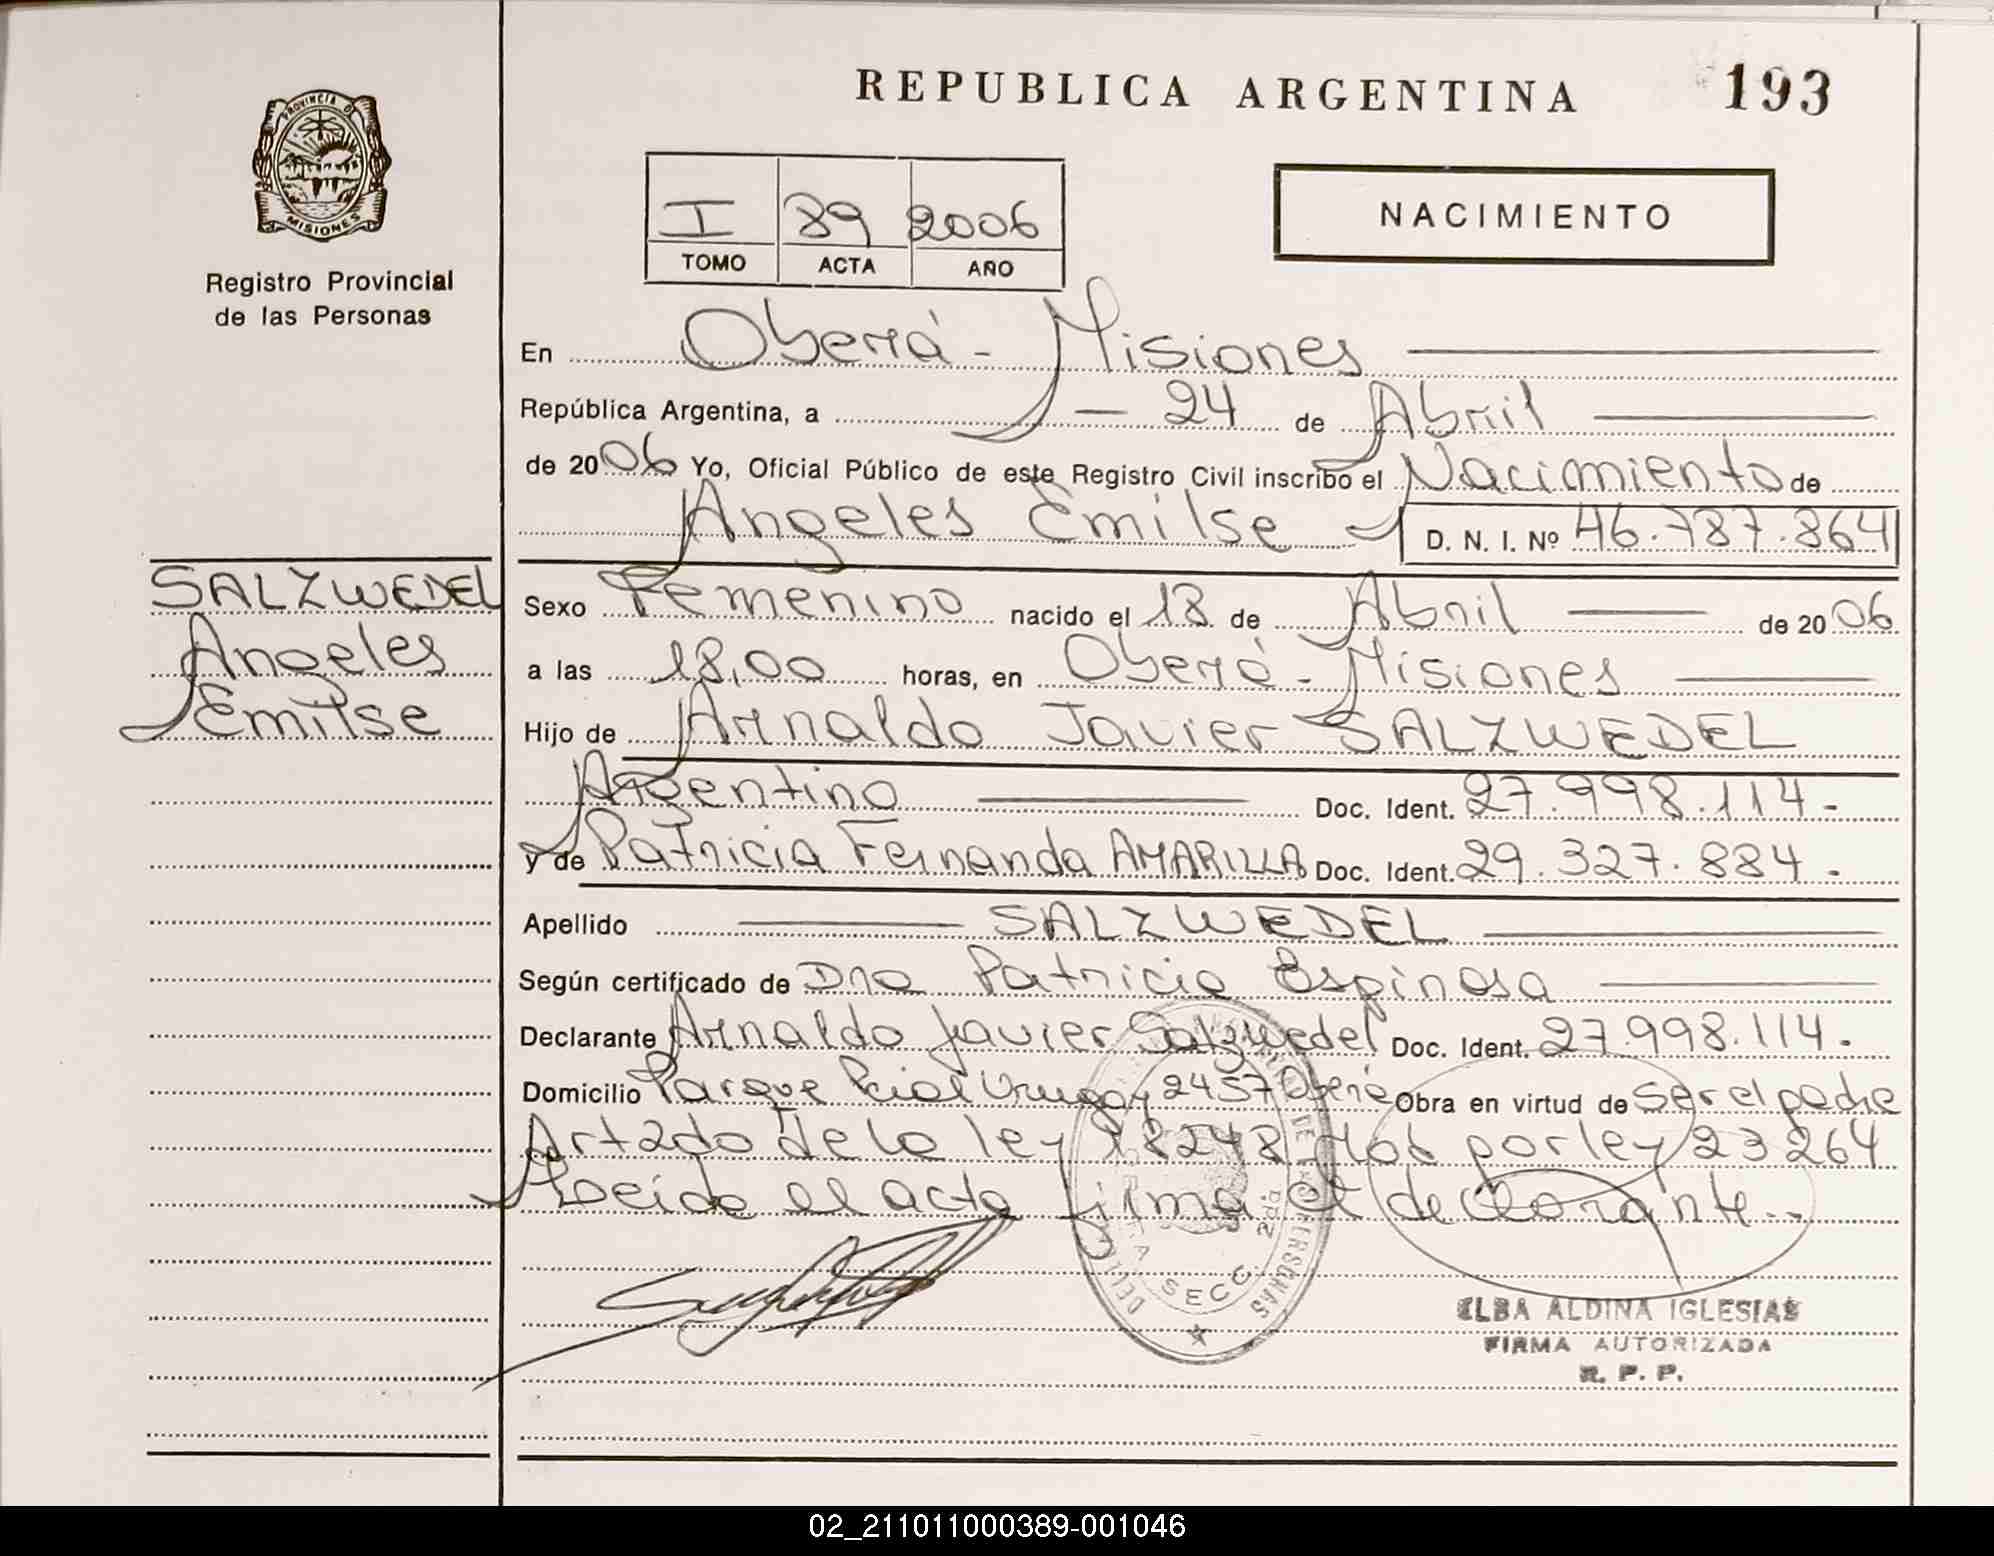 REPUBLICA ARGENTINA 193
PROVINCIA DE
MISIONES
Registro Provincial
de las Personas
I 89 2006
TOMO ACTA AÑO
NACIMIENTO
En Oberá - Misiones
República Argentina, a — 24 de Abril
de 2006 Yo, Oficial Público de este Registro Civil inscribo el Nacimiento de
Angeles Emilse D. N. I. Nº 46.787.864
SALZWEDEL
Angeles
Emilse
Sexo Femenino nacido el 18 de Abril de 2006
a las 18,00 horas, en Oberá - Misiones
Hijo de Arnaldo Javier SALZWEDEL
Argentino Doc. Ident. 27.998.114-
y de Patricia Fernanda AMARILLA Doc. Ident. 29.327.884-
Apellido SALZWEDEL
Según certificado de Dra Patricia Espinosa
Declarante Arnaldo Javier Salzwedel Doc. Ident. 27.998.114.
Domicilio Parque 2457 Oberá Obra en virtud de ser el padre
Art 2do de la ley 18248 por ley 23264
Leida el acta firma el declarante..
SECC. 2da
ELBA ALDINA IGLESIAS
FIRMA AUTORIZADA
R. P. P.
02_211011000389-001046